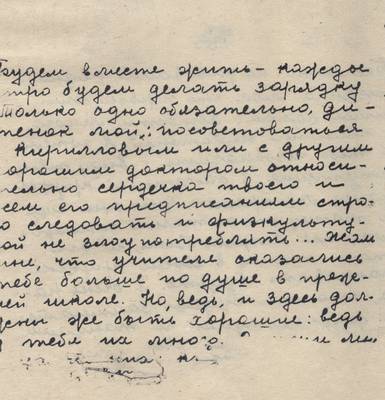 Будем вместе жить – каждое
тро будем делать зарядку
только одно обязательно, ди-
тенок мой: посоветоваться
Кирилловым или с другим
орошим доктором относи-
тельно сердечка твоего и
сем его предписаниям стро-
о следовать и физкульту-
ой не злоупотреблять... Жал
мне, что учителя оказались
тебе больше по душе в преж-
ней школе. Но ведь, и здесь дол-
жны же быть хорошие: ведь
у тебя их много.